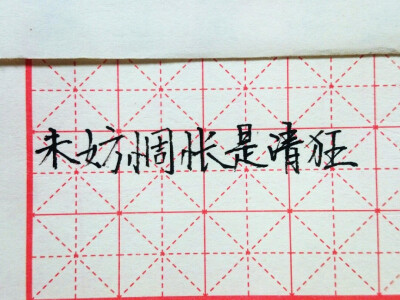 未妨惆怅是清狂